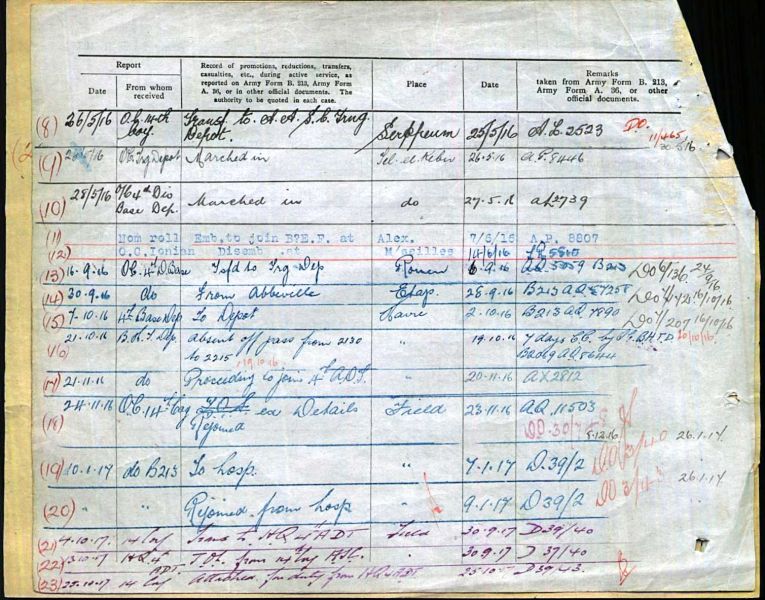 Report
Date
From whom received
Record of promotions, reductions, transfers, casualties, etc., during active service, as reported on Army Form B. 213, Army Form A. 36, or in other official documents. The authority to be quoted in each case.
Place
Date
Remarks
taken from Army Form B. 213, Army Form A. 36, or other official documents.
(8) 26/5/16 O.C. 14th Coy Transf. to A.A.S.C. Trng Depot. Serapeum 25/5/16 A.L. 2523 DO. 11/465
(9) /5/16 O.C. Trg Depot Marched in Tel-el-Kebir 26.5.16 8446
(10) 28/5/16 4th Div Base Dep. Marched in do 27.5.16 2739
(11) Nom roll Emb. to join B?E.F. at Alex. 7/6/16 A.P. 8807
(12) O.C. Ionian Disemb. at M/seilles 14/6/16
(13) 16.9.16 O.C. 4th D. Base Tsfd to Trg Dep Rouen 6.9.16 A.Q. B213
(14) 30.9.16 do From Abbeville Etap. 28.9.16 B213 A.Q. 57258
(15) 7.10.16 4th Base Dep To Depot Havre 2.10.16 B213 A.Q. 7890 207 16/10/16
(16) 21.10.16 Absent off pass from 2130 to 2215 19.10.16 19.10.16 7 days C.C. by 20/10/16
Bad 69 A.Q. 8644
(17) 21.11.16 do Proceeding to join 4th A.D.T. 20.11.16 AX2812
(18) 24.11.16 O.C. 14th Coy ex Details Rejoined Field 23.11.16 A.Q. 11503
8.12.16 26.1.17.
(19) 10.1.17 do B213 To hosp. " 7.1.17 D.39/2
26.1.17.
(20) " " Rejoined from hosp " 9.1.17 D39/2
(21) .10.17. 14 Coy Trans to HQ 4th ADT Field 30.9.17 D39/40
(22) .10.17 HQ 4th ADT. T.O.S. from 14th Coy " 30.9.17 D 39/40
(23) 25.10.17 14 Coy Attached for duty from HQ 4th ADT " 25.10 D39/43.